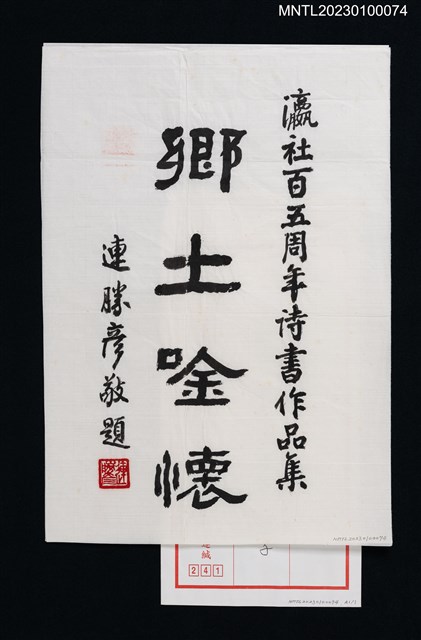 MNTL20230100074
瀛社百五周年诗書作品集
鄉土唫懷
連勝彥敬題
緘
241
MNTL20230100074